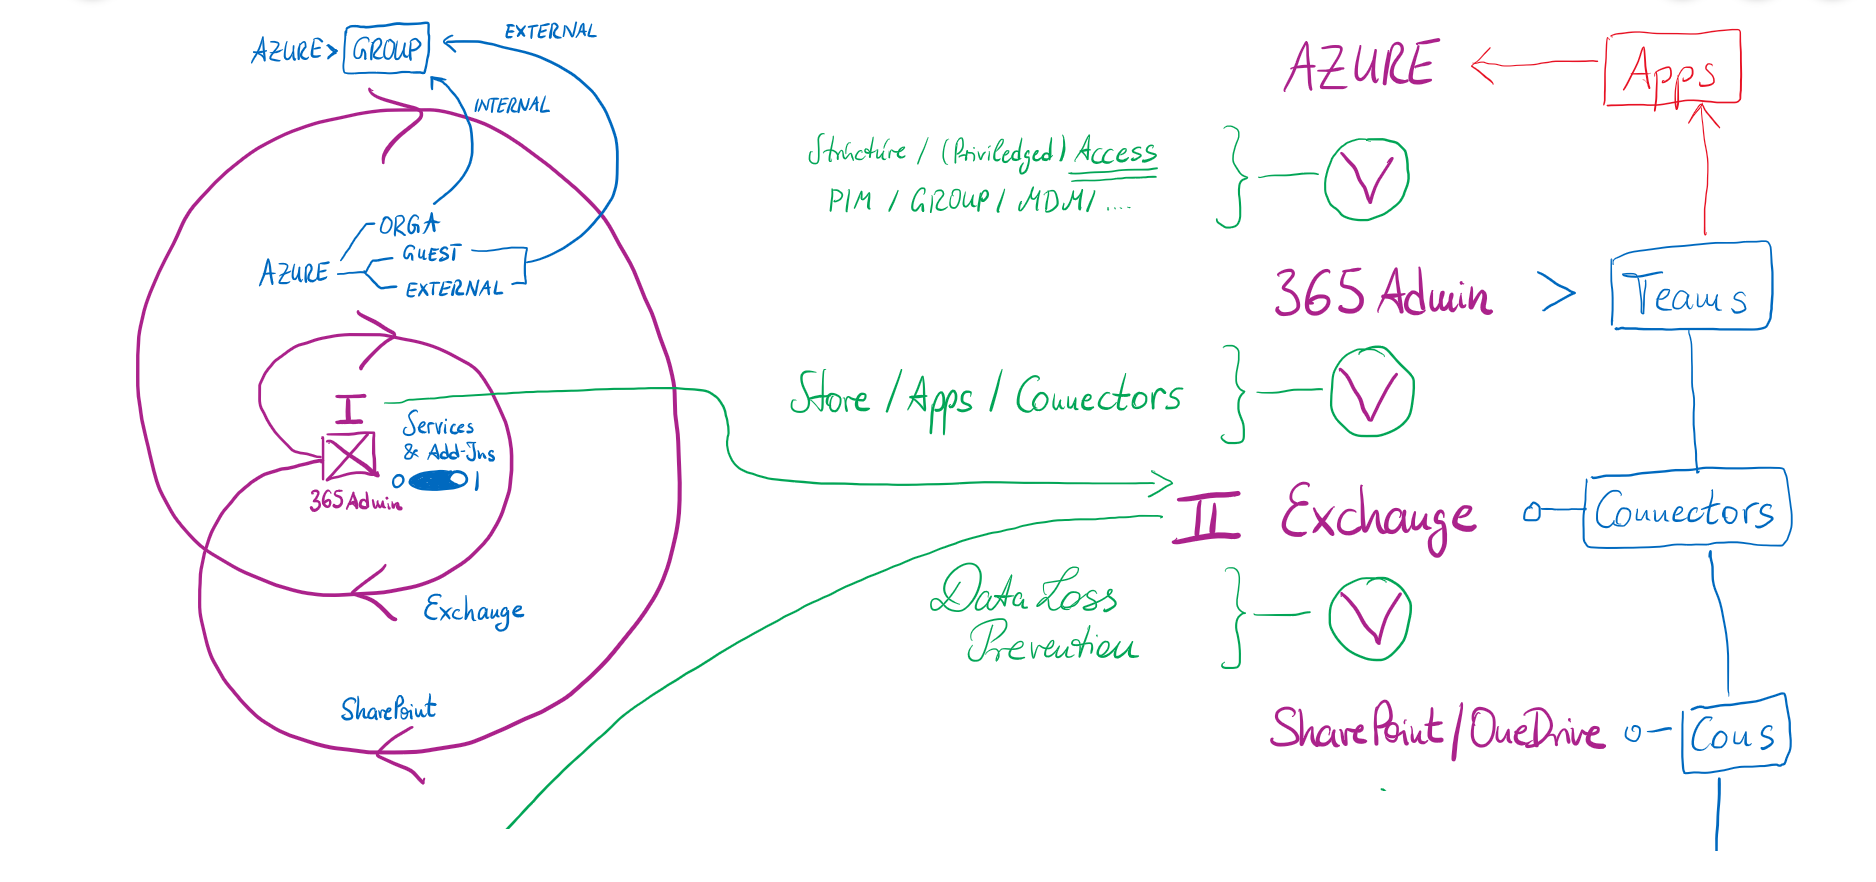 AZURE > GROUP
EXTERNAL
INTERNAL
ORGA
GUEST
AZURE
EXTERNAL
I
Services
& Add-Ins
0 1
365 Admin
Exchange
SharePoint
AZURE
Apps
Structure / (Priviledged) Access
PIM / GROUP / MDM / ....
V
365 Admin > Teams
Store / Apps / Connectors
V
II Exchange
Connectors
Data Loss
Prevention
V
SharePoint/OneDrive
Cons